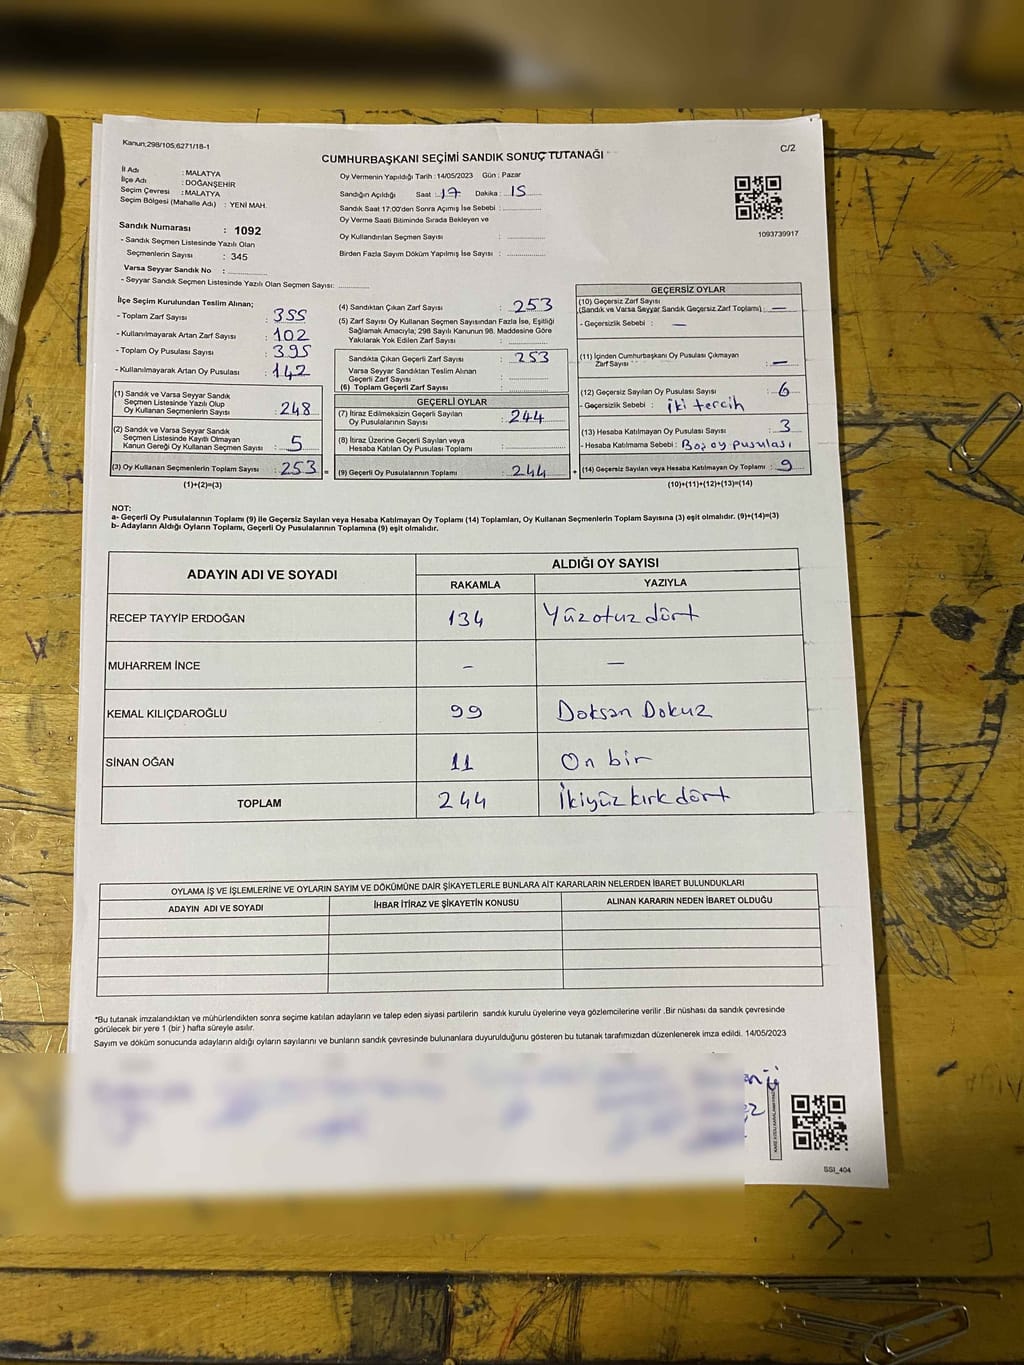 Kanun;298/105;6271/18-1
C/2
CUMHURBAŞKANI SEÇİMİ SANDIK SONUÇ TUTANAĞI
İl Adı : MALATYA
İlçe Adı : DOĞANŞEHİR
Seçim Çevresi : MALATYA
Seçim Bölgesi (Mahalle Adı) : YENİ MAH.
Sandık Numarası : 1092
- Sandık Seçmen Listesinde Yazılı Olan
Seçmenlerin Sayısı : 345
Varsa Seyyar Sandık No :
- Seyyar Sandık Seçmen Listesinde Yazılı Olan Seçmen Sayısı:
Oy Vermenin Yapıldığı Tarih : 14/05/2023 Gün : Pazar
Sandığın Açıldığı Saat : 17 Dakika : 15
Sandık Saat 17:00'den Sonra Açımış İse Sebebi :
Oy Verme Saati Bitiminde Sırada Bekleyen ve
Oy Kullandırılan Seçmen Sayısı :
Birden Fazla Sayım Döküm Yapılmış İse Sayısı :
1093739917
İlçe Seçim Kurulundan Teslim Alınan;
- Toplam Zarf Sayısı : 355
- Kullanılmayarak Artan Zarf Sayısı : 102
- Toplam Oy Pusulası Sayısı : 395
- Kullanılmayarak Artan Oy Pusulası : 142
(1) Sandık ve Varsa Seyyar Sandık
Seçmen Listesinde Yazılı Olup
Oy Kullanan Seçmenlerin Sayısı : 248
(2) Sandık ve Varsa Seyyar Sandık
Seçmen Listesinde Kayıtlı Olmayan
Kanun Gereği Oy Kullanan Seçmen Sayısı : 5
(3) Oy Kullanan Seçmenlerin Toplam Sayısı : 253 =
(1)+(2)=(3)
(4) Sandıktan Çıkan Zarf Sayısı : 253
(5) Zarf Sayısı Oy Kullanan Seçmen Sayısından Fazla İse, Eşitliği
Sağlamak Amacıyla; 298 Sayılı Kanunun 98. Maddesine Göre
Yakılarak Yok Edilen Zarf Sayısı :
Sandıkta Çıkan Geçerli Zarf Sayısı : 253
Varsa Seyyar Sandıktan Teslim Alınan
Geçerli Zarf Sayısı :
(6) Toplam Geçerli Zarf Sayısı :
GEÇERLİ OYLAR
(7) İtiraz Edilmeksizin Geçerli Sayılan
Oy Pusulalarının Sayısı : 244
(8) İtiraz Üzerine Geçerli Sayılan veya
Hesaba Katılan Oy Pusulası Toplamı :
(9) Geçerli Oy Pusulalarının Toplamı : 244 +
GEÇERSİZ OYLAR
(10) Geçersiz Zarf Sayısı
(Sandık ve Varsa Seyyar Sandık Geçersiz Zarf Toplamı) : —
- Geçersizlik Sebebi : —
(11) İçinden Cumhurbaşkanı Oy Pusulası Çıkmayan
Zarf Sayısı : —
(12) Geçersiz Sayılan Oy Pusulası Sayısı : 6
- Geçersizlik Sebebi : iki tercih
(13) Hesaba Katılmayan Oy Pusulası Sayısı : 3
- Hesaba Katılmama Sebebi : Boş oy pusulası
(14) Geçersiz Sayılan veya Hesaba Katılmayan Oy Toplamı : 9
(10)+(11)+(12)+(13)=(14)
NOT:
a- Geçerli Oy Pusulalarının Toplamı (9) ile Geçersiz Sayılan veya Hesaba Katılmayan Oy Toplamı (14) Toplamları, Oy Kullanan Seçmenlerin Toplam Sayısına (3) eşit olmalıdır. (9)+(14)=(3)
b- Adayların Aldığı Oyların Toplamı, Geçerli Oy Pusulalarının Toplamına (9) eşit olmalıdır.
ADAYIN ADI VE SOYADI
ALDIĞI OY SAYISI
RAKAMLA YAZIYLA
RECEP TAYYİP ERDOĞAN 134 Yüzotuz dört
MUHARREM İNCE – —
KEMAL KILIÇDAROĞLU 99 Doksan Dokuz
SİNAN OĞAN 11 On bir
TOPLAM 244 İkiyüz kırk dört
OYLAMA İŞ VE İŞLEMLERİNE VE OYLARIN SAYIM VE DÖKÜMÜNE DAİR ŞİKAYETLERLE BUNLARA AİT KARARLARIN NELERDEN İBARET BULUNDUKLARI
ADAYIN ADI VE SOYADI İHBAR İTİRAZ VE ŞİKAYETİN KONUSU ALINAN KARARIN NEDEN İBARET OLDUĞU
*Bu tutanak imzalandıktan ve mühürlendikten sonra seçime katılan adayların ve talep eden siyasi partilerin sandık kurulu üyelerine veya gözlemcilerine verilir .Bir nüshası da sandık çevresinde
görülecek bir yere 1 (bir ) hafta süreyle asılır.
Sayım ve döküm sonucunda adayların aldığı oyların sayılarını ve bunların sandık çevresinde bulunanlara duyurulduğunu gösteren bu tutanak tarafımızdan düzenlenerek imza edildi. 14/05/2023
SSI_404